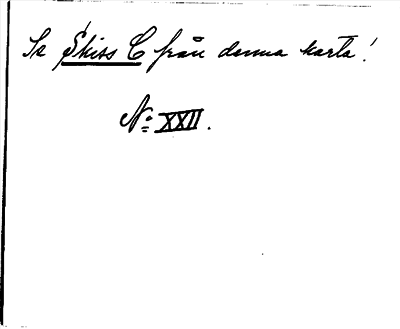 Se Skiss C från denna karta!
No: XXII.